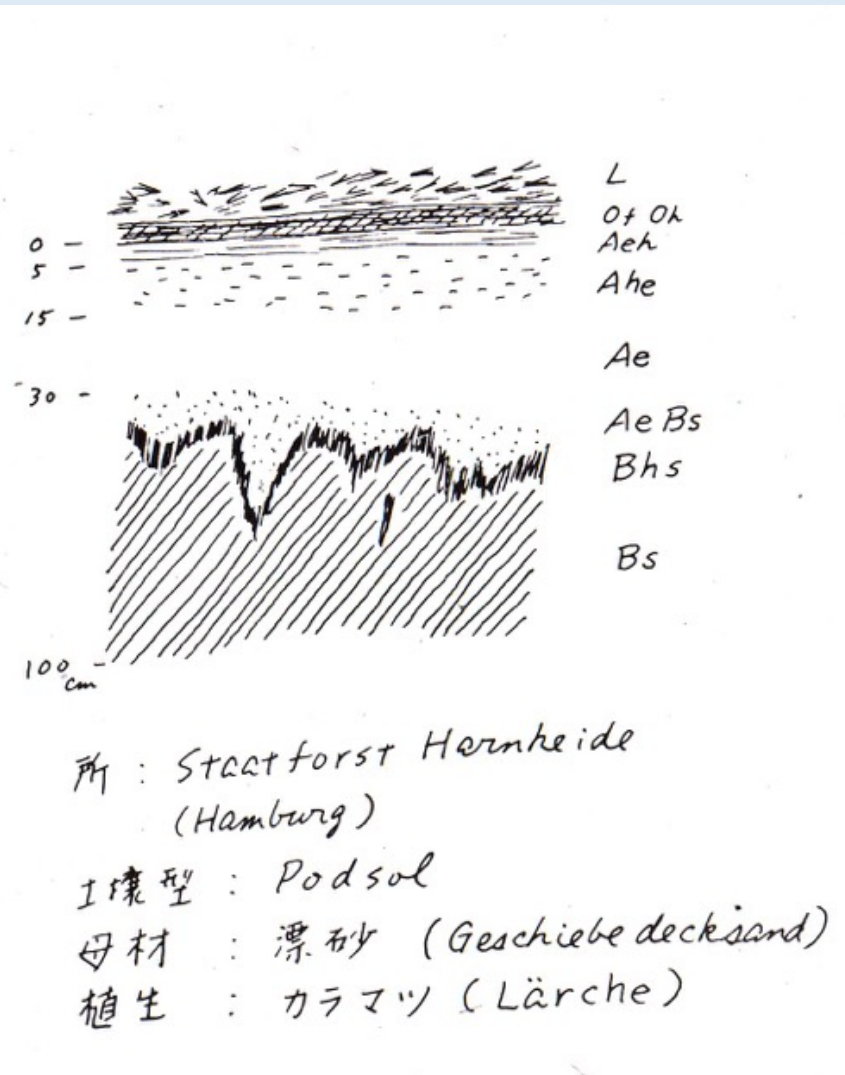 L
Of Oh
0 - Aeh
5 - Ahe
15 -
Ae
30 -
Ae Bs
Bhs
Bs
100 -
cm
所 : Staatforst Harnheide
(Hamburg)
土壌型 : Podsol
母材 : 漂砂 (Geschiebedecksand)
植生 : カラマツ (Lärche)